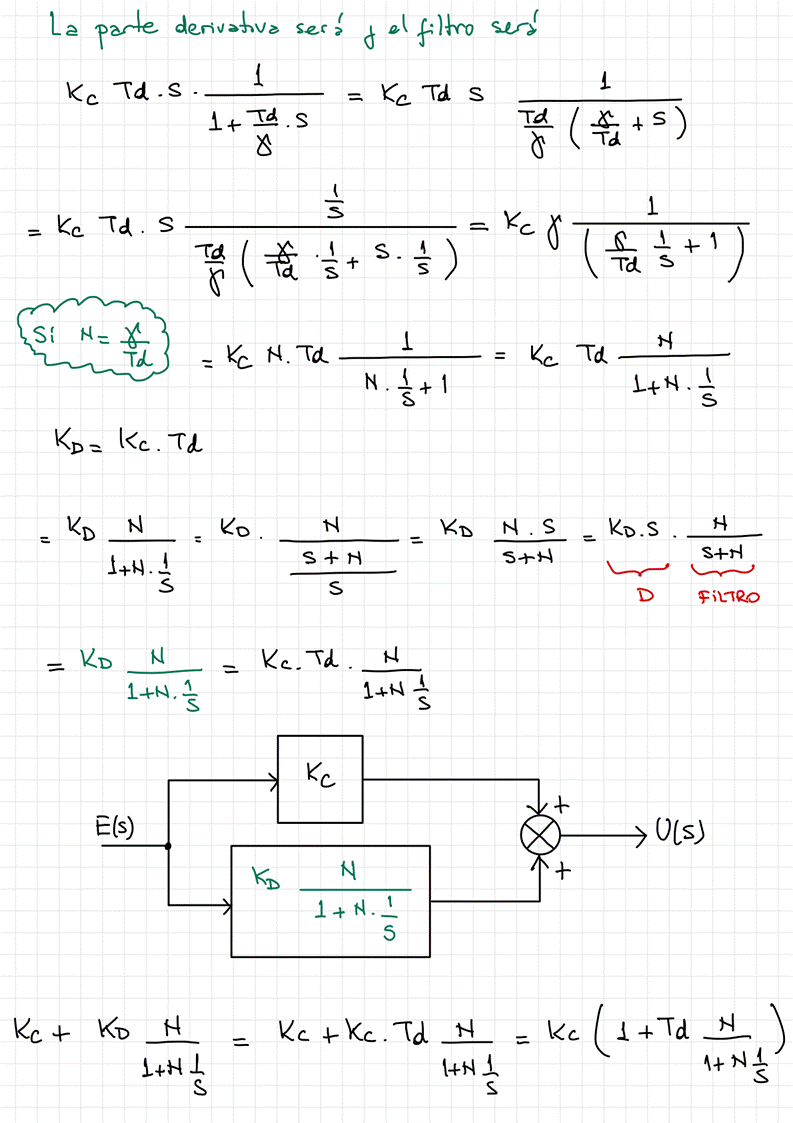 La parte derivativa será y el filtro será
Kc Td . S . 1 / (1 + Td/γ . S) = Kc Td S 1 / (Td/γ (γ/Td + S))
= Kc Td . S (1/S) / (Td/γ (γ/Td . 1/S + S . 1/S)) = Kc γ 1 / (γ/Td 1/S + 1)
Si N = γ/Td
= Kc N . Td 1 / (N . 1/S + 1) = Kc Td N / (1 + N . 1/S)
KD = Kc . Td
= KD N / (1+N . 1/S) = KD . N / ((S+N)/S) = KD N . S / (S+N) = KD . S . N / (S+N)
D FILTRO
= KD N / (1+N . 1/S) = Kc . Td . N / (1+N 1/S)
Kc
E(s)
+
U(s)
+
KD N / (1 + N . 1/S)
Kc + KD N / (1+N 1/S) = Kc + Kc . Td N / (1+N 1/S) = Kc (1 + Td N / (1+N 1/S))